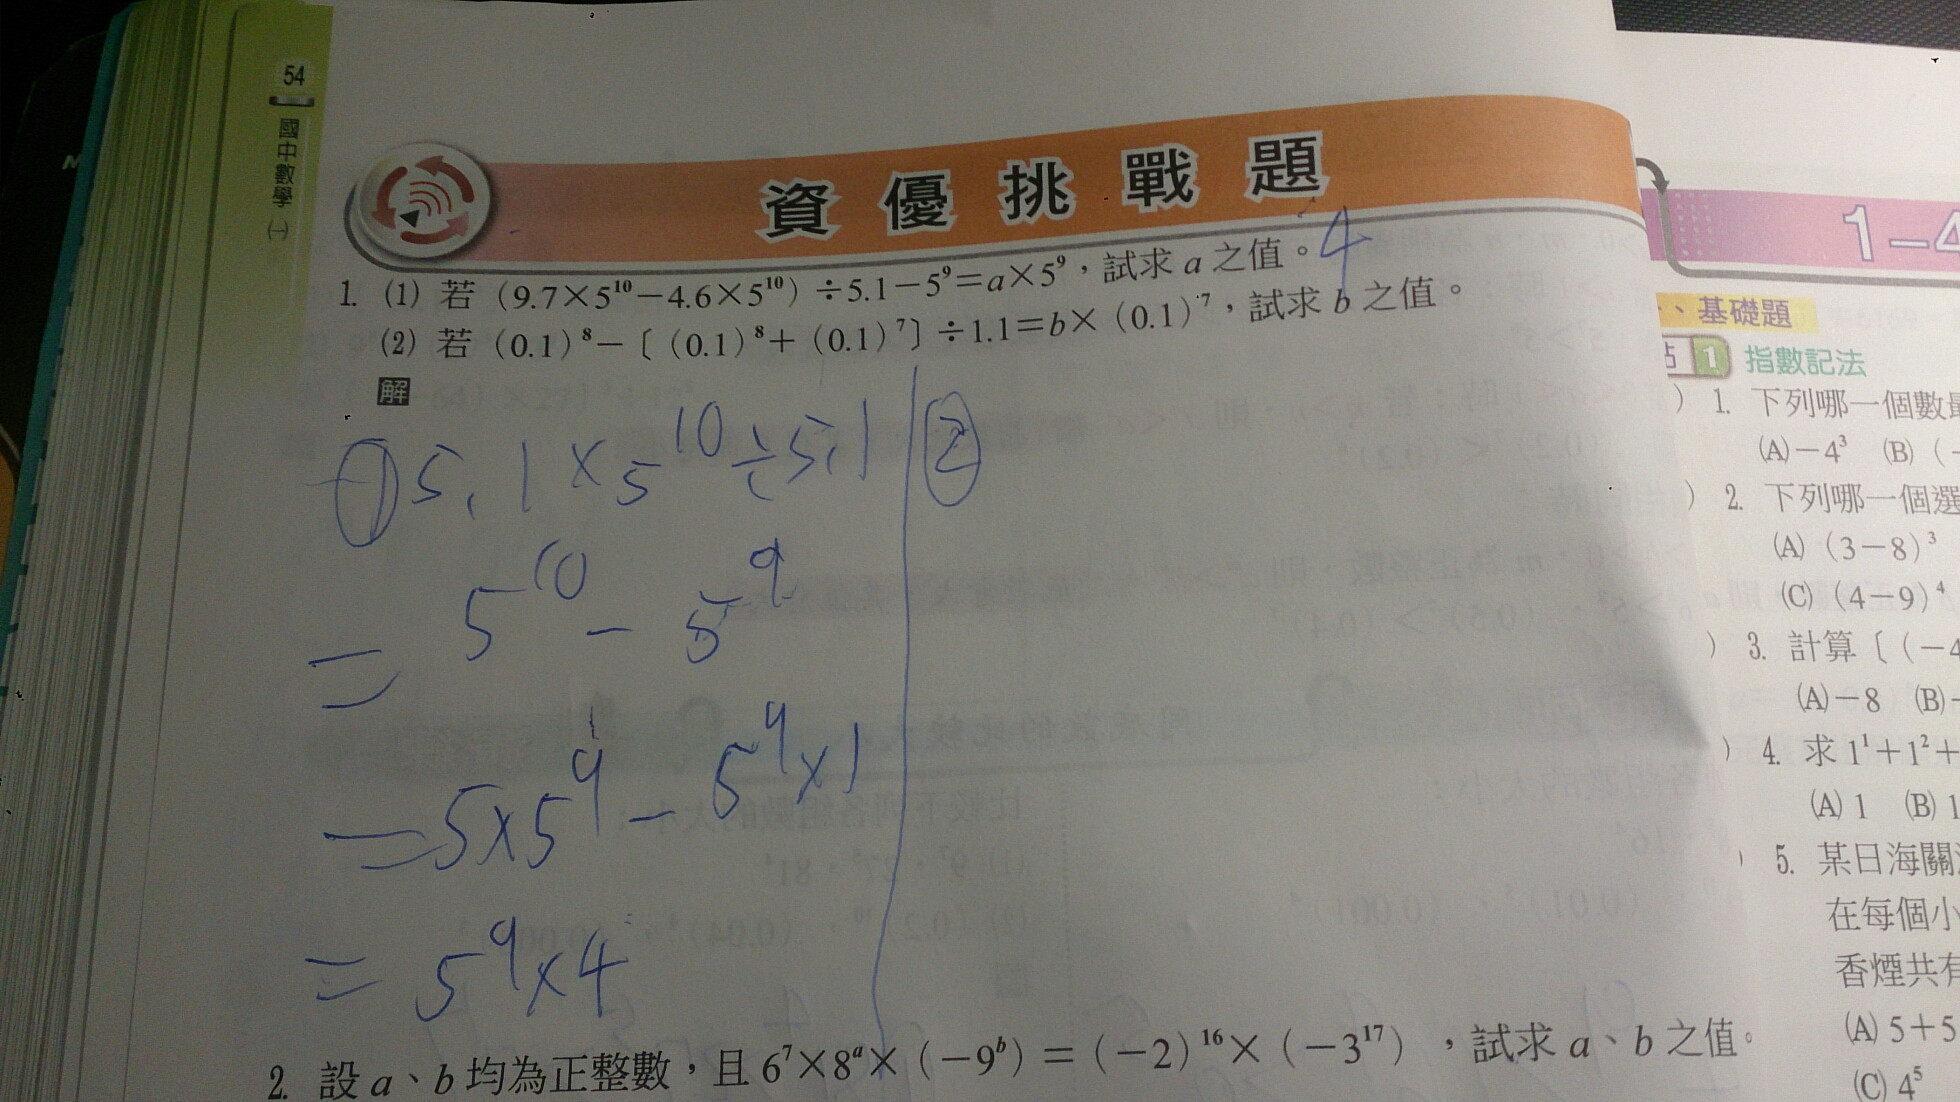 54
國中數學(一)
資優挑戰題
1. (1) 若 (9.7×5¹⁰－4.6×5¹⁰) ÷5.1－5⁹＝a×5⁹，試求 a 之值。4
(2) 若 (0.1)⁸－〔(0.1)⁸＋(0.1)⁷〕÷1.1＝b×(0.1)⁷，試求 b 之值。
解
① 5.1×5¹⁰÷5.1
= 5¹⁰－5⁹
= 5×5⁹－5⁹×1
= 5⁹×4
②
2. 設 a、b 均為正整數，且 6⁷×8ᵃ×(－9ᵇ)＝(－2)¹⁶×(－3¹⁷)，試求 a、b 之值。
1-4
、基礎題
1 指數記法
) 1. 下列哪一個數
(A)－4³ (B) (－
) 2. 下列哪一個選
(A) (3－8)³
(C) (4－9)⁴
) 3. 計算〔(－4
(A)－8 (B)－
) 4. 求 1¹＋1²＋
(A) 1 (B) 1
) 5. 某日海關
在每個小
香煙共有
(A) 5＋5
(C) 4⁵